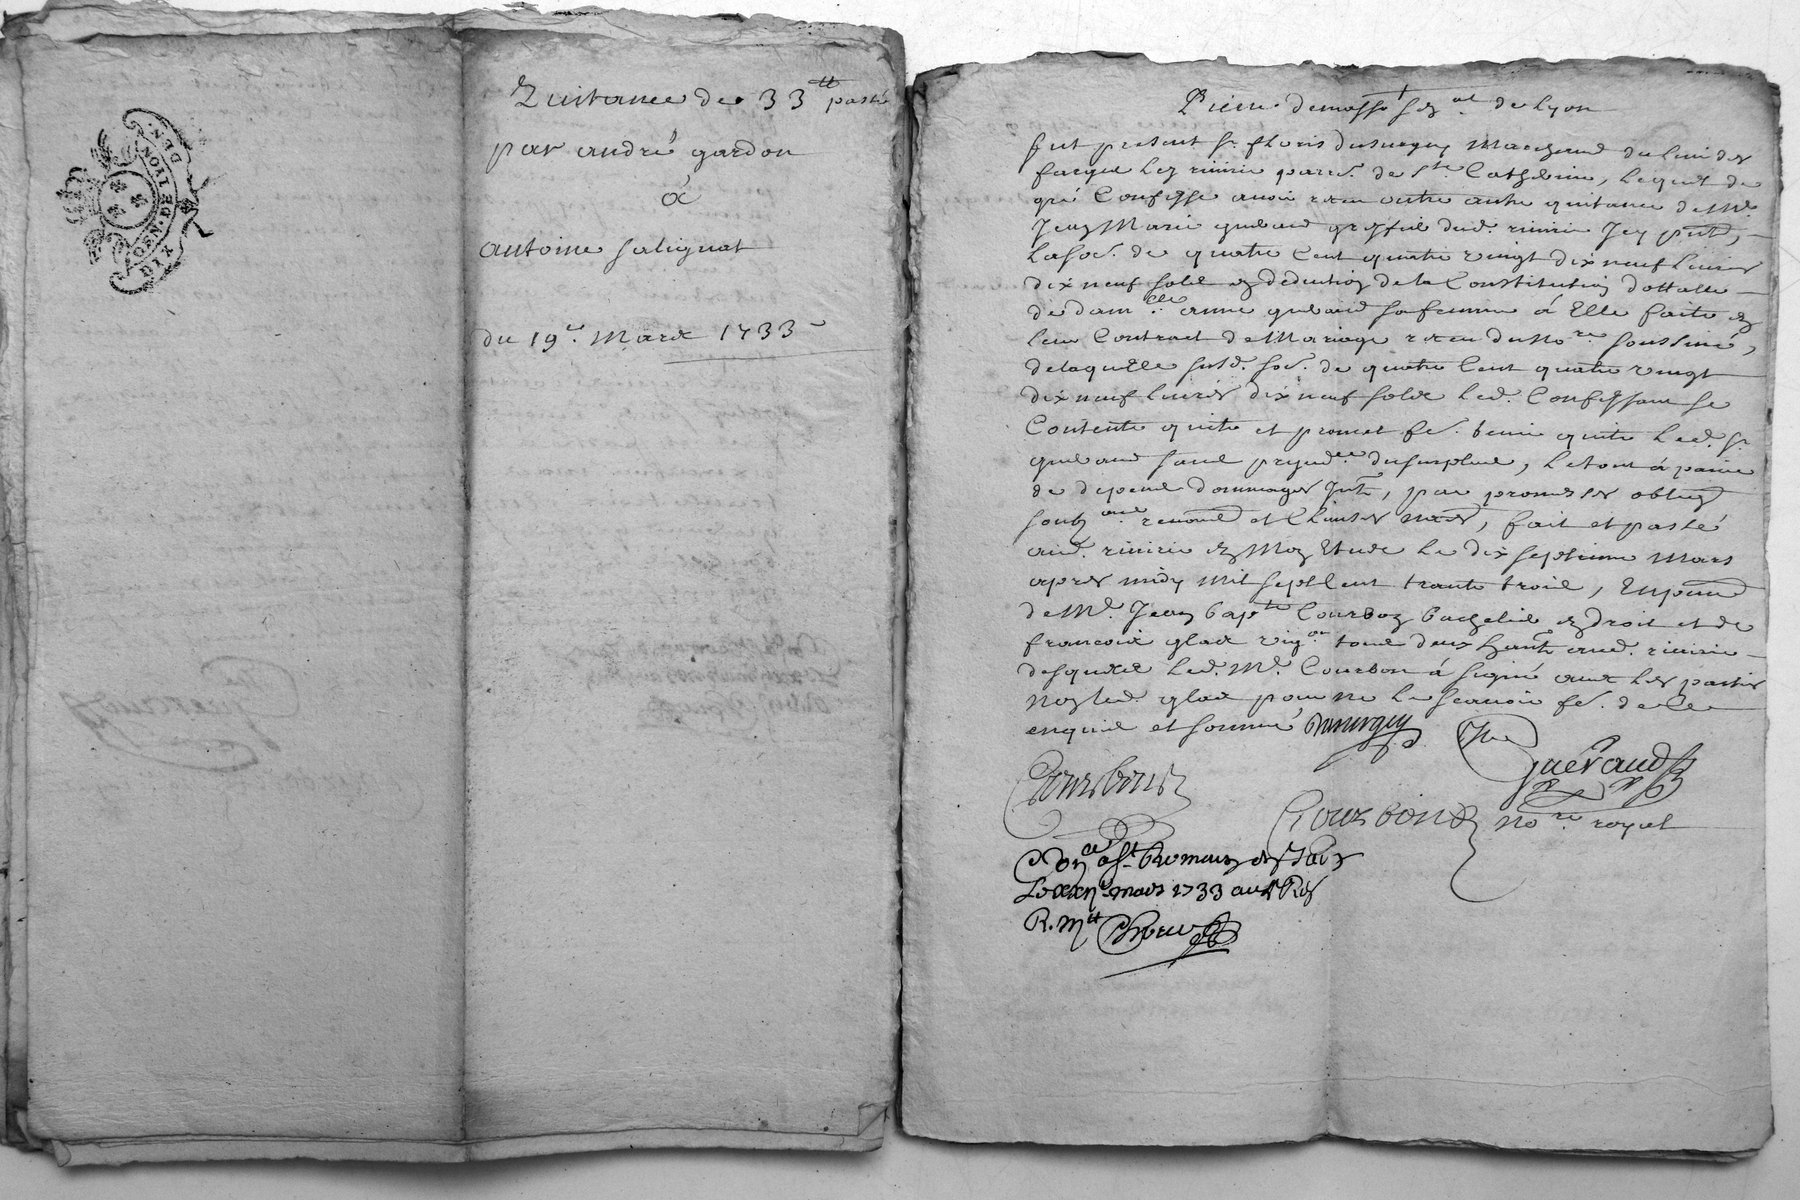 GEN. DE LYON
DIX DEN.
Quitance de 33tt passé
par andré gardon
a
antoine salignat
du 19e. Mars 1733
Pierre demasso sen.al de Lyon
fut present Sr. floris dusurgey Marchand du lieu des
farque lez rivirie parr. de Ste. Catherine, lequel de
gré Confesse avoir receu outre autre quitance de Me.
Jean Marie gueraud greffier dud. rivirie Icy pnt,
La so.e de quatre Cent quatre vingt dix neuf livres
dix neuf sols en deduction de la Constitution dottalle
de dam.elle anne gueraud sa femme á Elle faite en
leur Contract de Mariage receu du No.re soussiné,
de laquelle susd. so. de quatre Cent quatre vingt
dix neuf livres dix neuf sols led. Confessant se
Contente quite et promet fe. tenir quite led. Sr.
gueraud sans prejud.ce du surplus, le tout á paine
de depens dommages Intts, par promesses oblig
soubz.ons renon et Clauses necres, fait et passé
aud. rivirie en Mon Etude le dix septieme Mars
apres midy Mil sept Cent trante trois, En pnce
de Me. Jean bapte. Courbon bachelier en droit et de
francois glas vig.on tous deux habts aud. rivirie
desquels led. Me. Courbon á signé avec les parties
Non led. glas pour ne le scavoir fe. de ce
enquis et sommé Dusurgey
Gueraud
Courbon
Courbon no.re royal
mars 1733